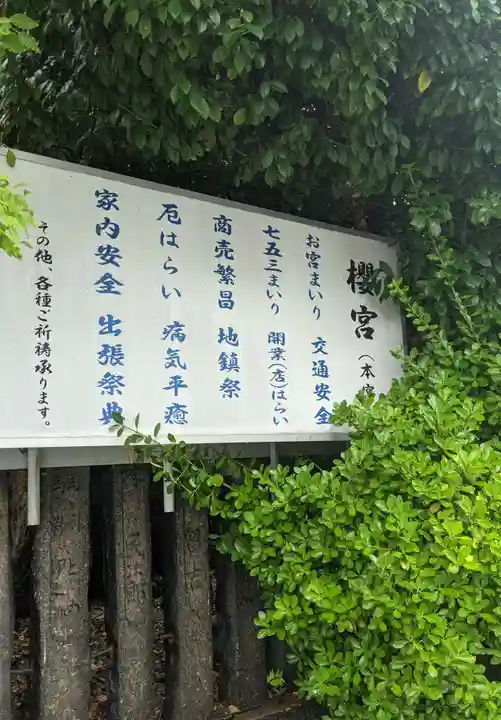 櫻宮（本宮
お宮まいり 交通安全
七五三まいり 開業(店)はらい
商売繁昌 地鎮祭
厄はらい 病気平癒
家内安全 出張祭典
その他、各種ご祈祷承ります。